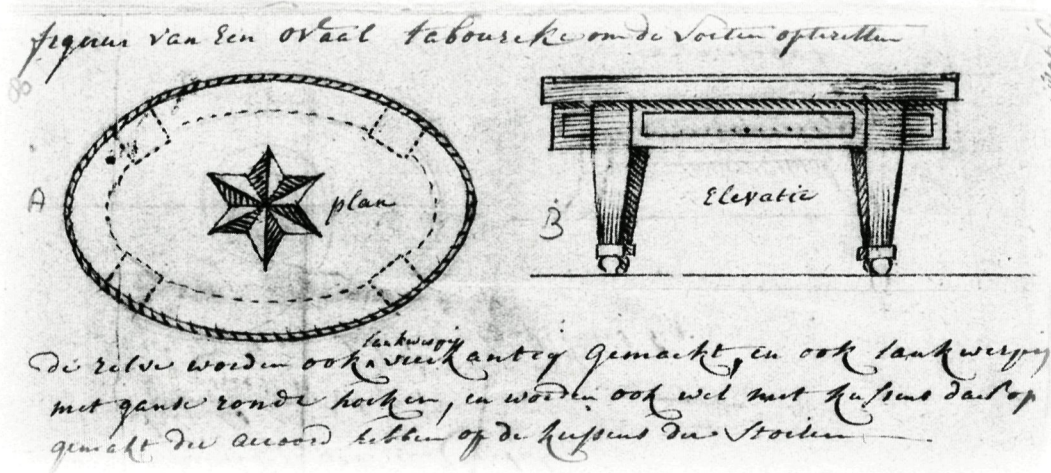 figuur van Een ovaal taboureke om de voeten op te zetten
A
plan
B
Elevatie
lankwerpig
de zelve worden ook vierkantig gemackt, en ook lankwerpig
met gansе ronde hoeken, en worden ook wel met kussens daer op
gemakt die accoord hebben op de kussens der Stoelen